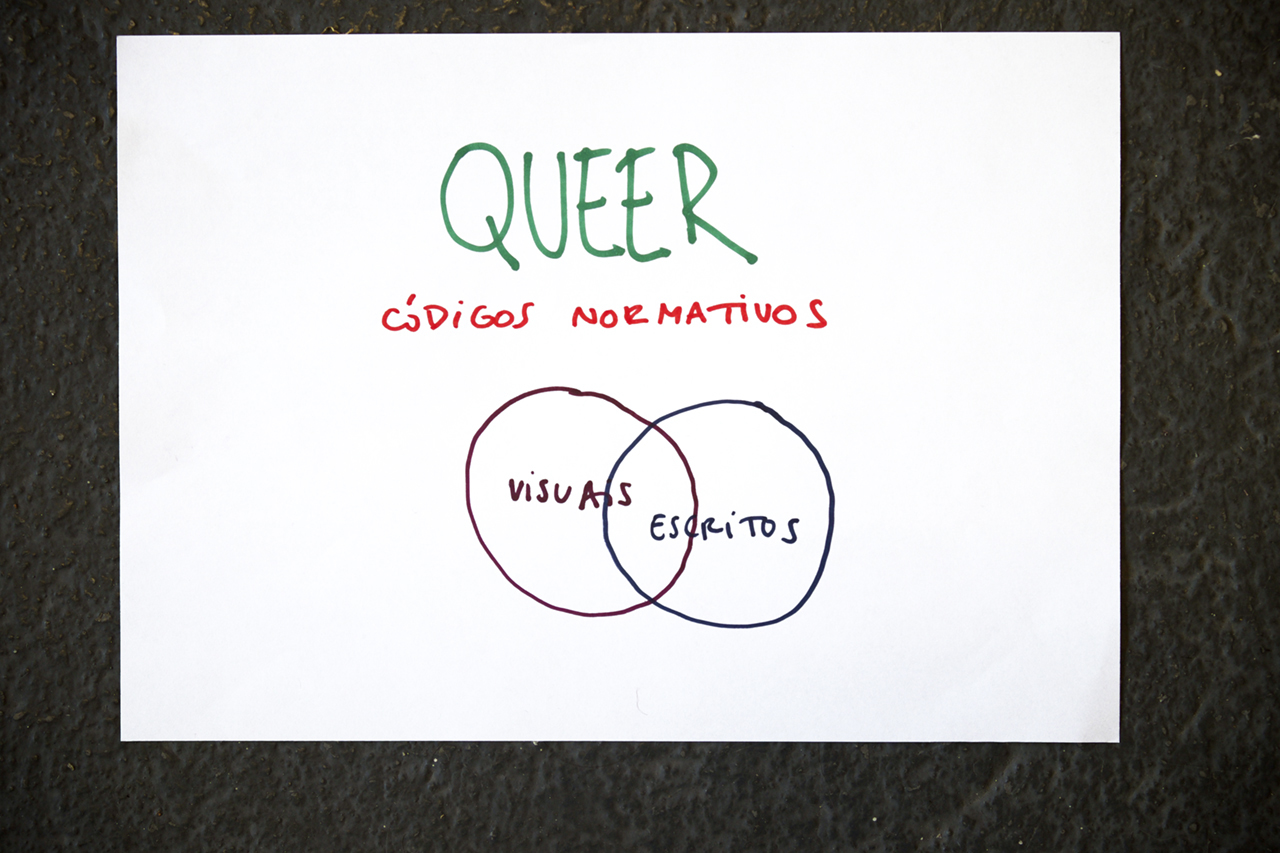 QUEER
CÓDIGOS NORMATIVOS
VISUAIS
ESCRITOS